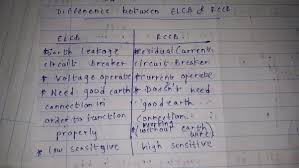 Difference between ELCB & RCCB
ELCB RCCB
* Earth Leakage * Residual Current
circuit Breaker circuit Breaker
* Voltage operate * Current operate
* Need good earth * Doesn't need
connection in good earth
order to function connection.
properly working
(without earth
* low sensitive high sensitive